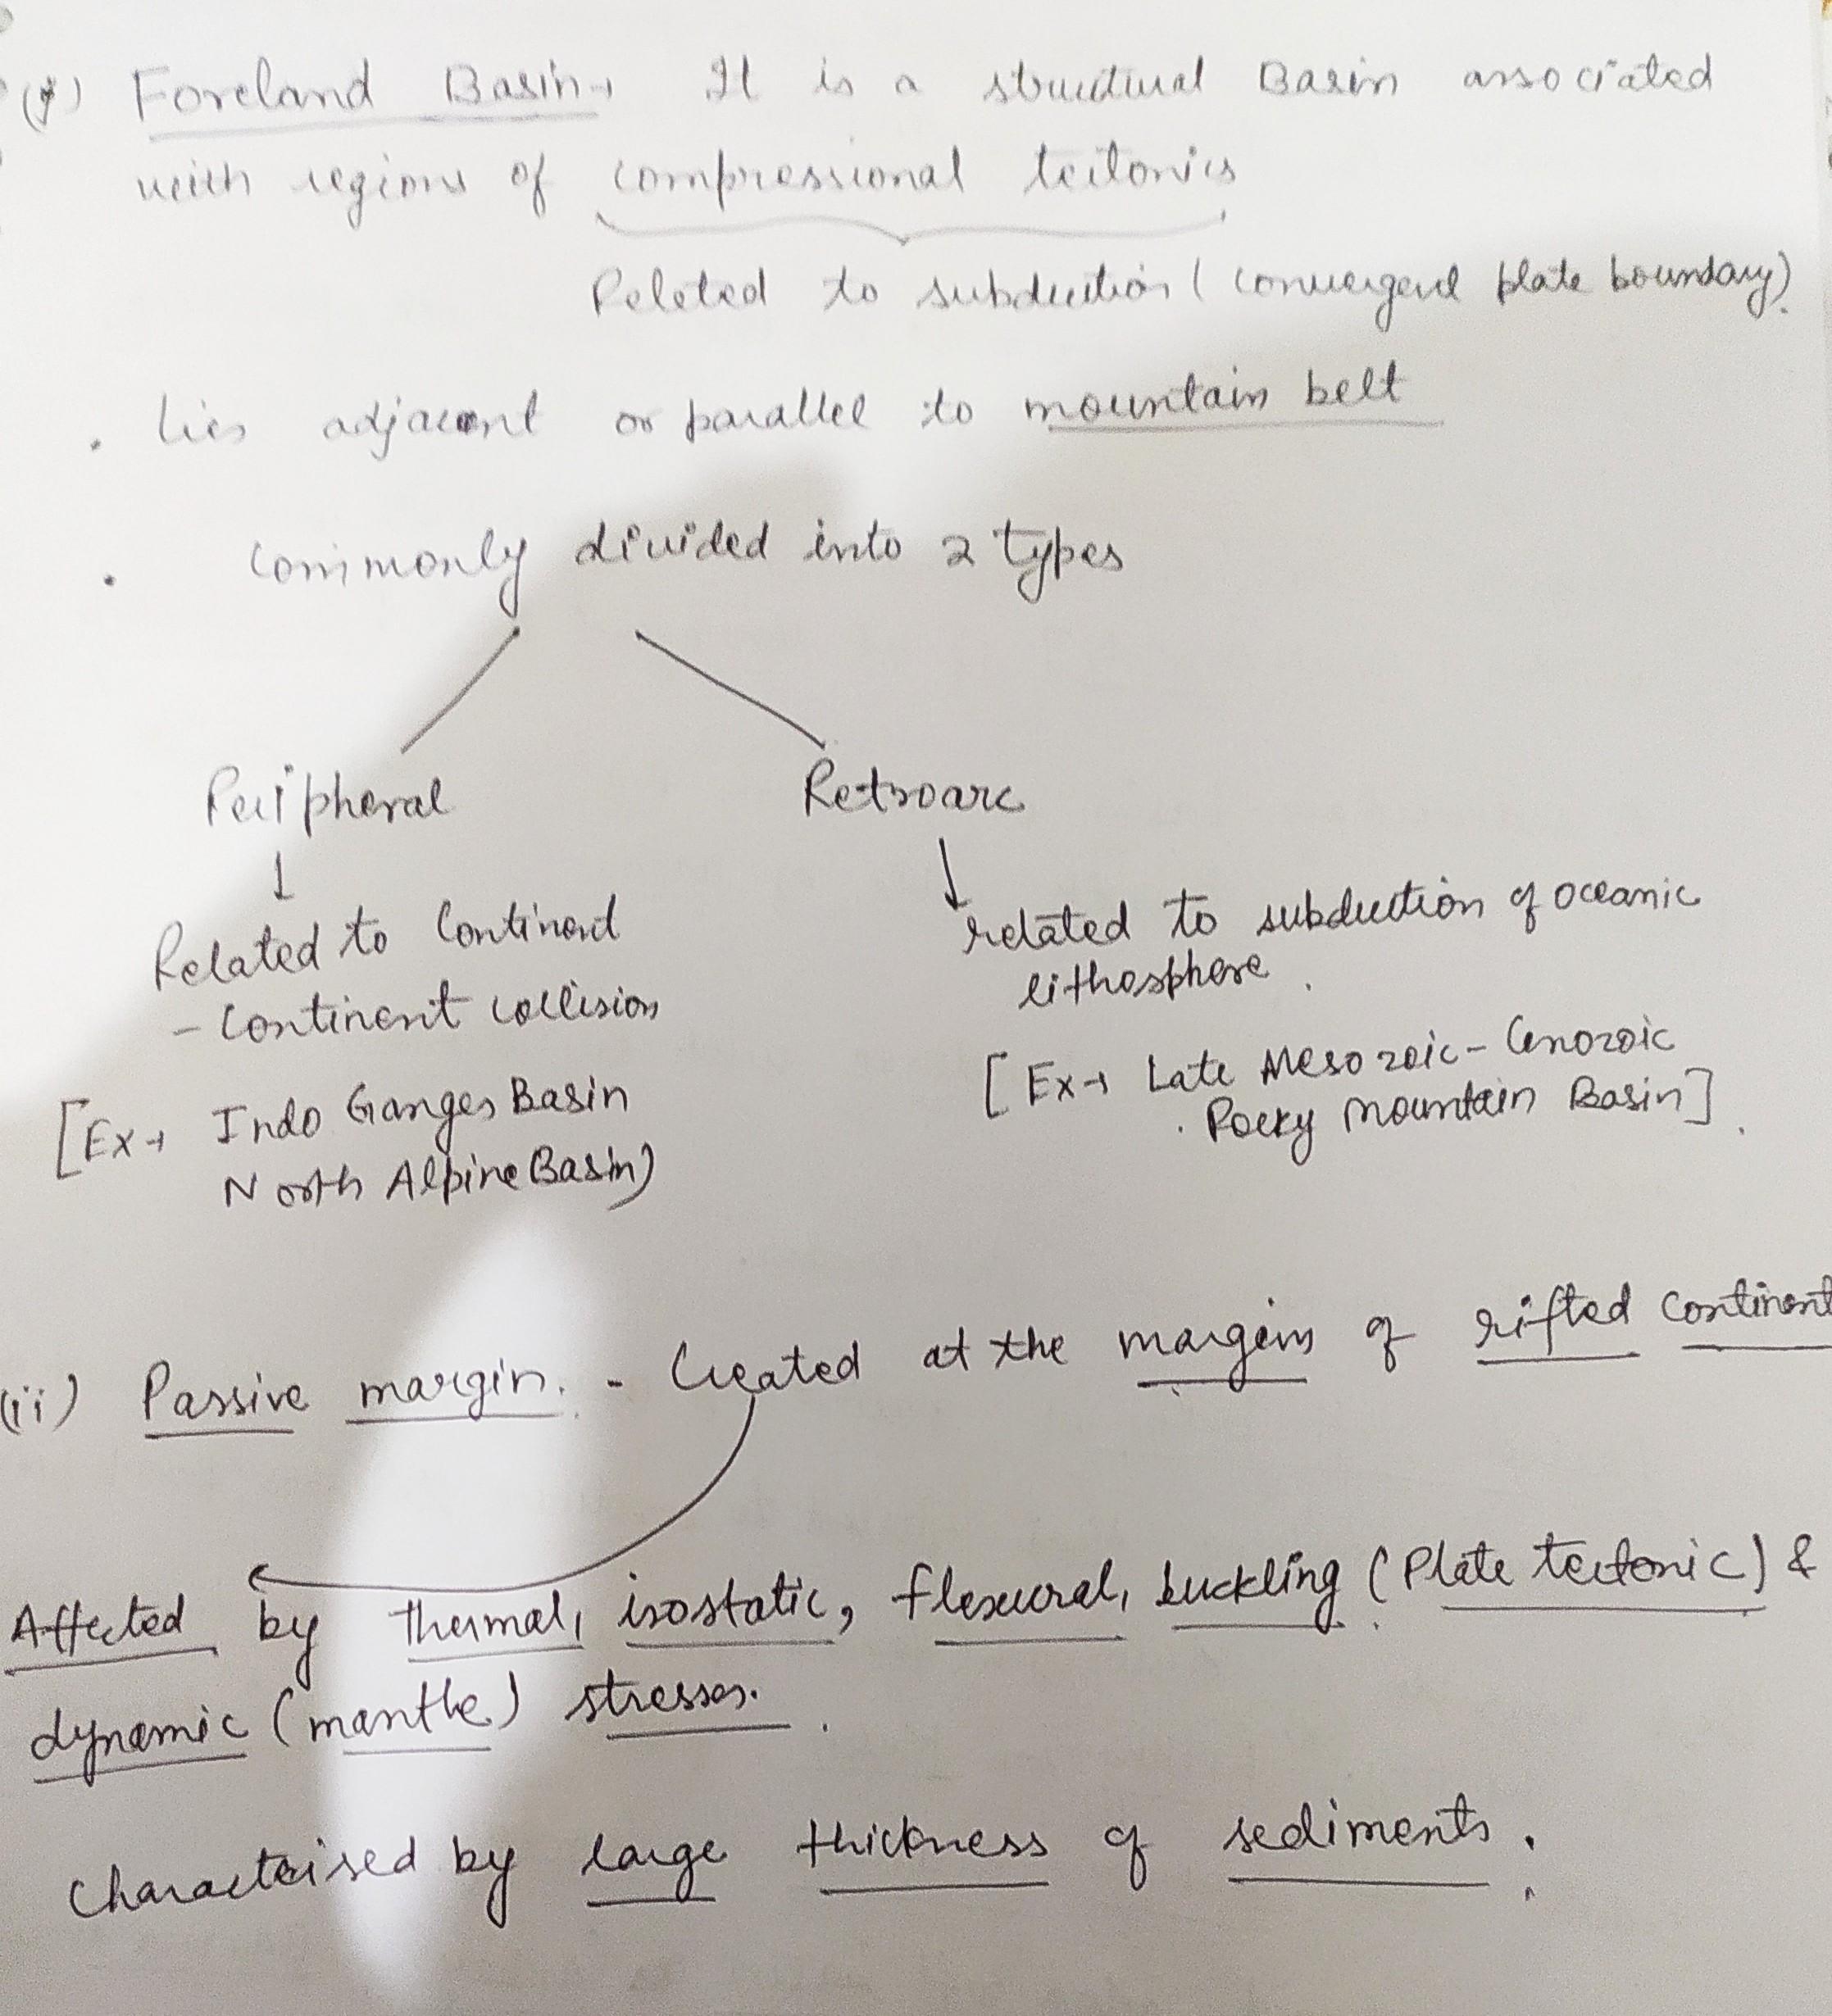 (i) Foreland Basin → It is a structural Basin associated
with regions of compressional tectonics
Releted to subduction (convergent plate boundary).
• lies adjacent or parallel to mountain belt
• Commonly divided into 2 types
Peripheral Retroarc
↓ ↓
Related to Continent
- Continent collision
[Ex → Indo Ganges Basin
North Alpine Basin)
related to subduction of oceanic
lithosphere.
[Ex → Late Mesozoic - Cenozoic
Rocky Mountain Basin].
(ii) Passive margin. - Created at the margins of rifted continent
Affected by thermal, isostatic, flexural, buckling (Plate tectonic) &
dynamic (mantle) stresses.
Characterised by large thickness of sediments.